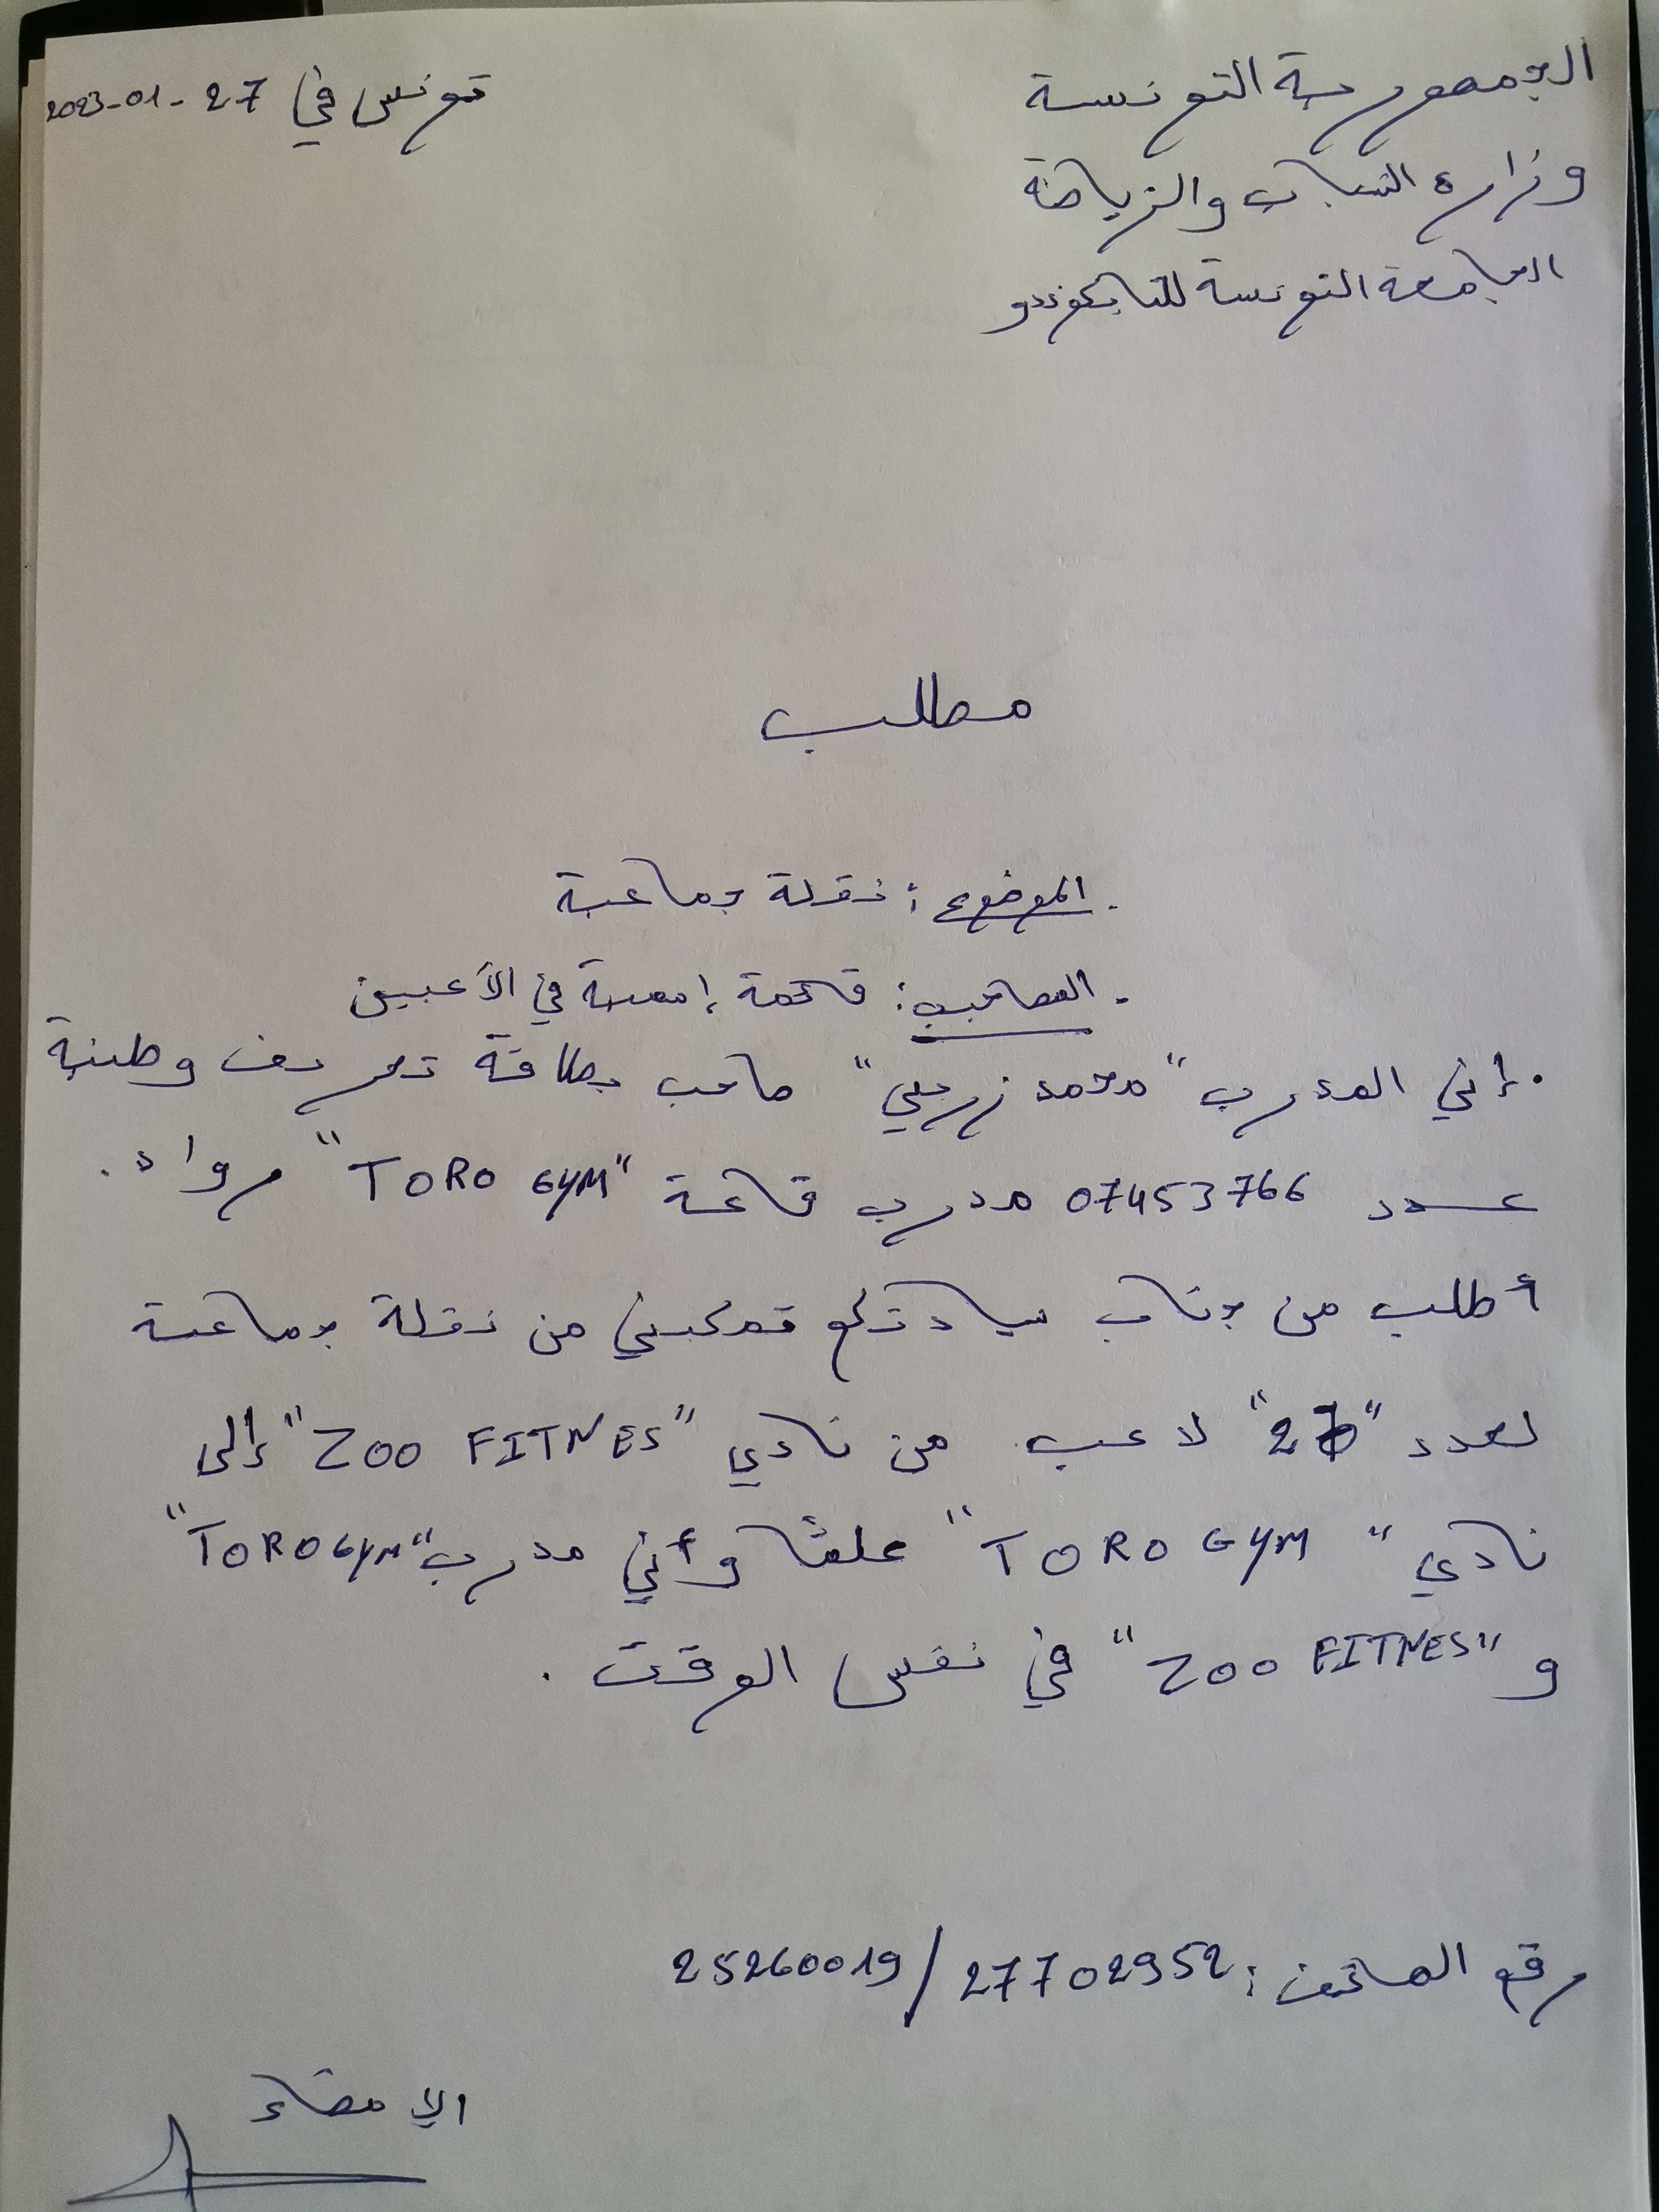 الجمهورية التونسية
تونس في 27-01-2023
وزارة الشباب والرياضة
الجامعة التونسية للتايكوندو
مطلب
. الموضوع : نقلة جماعية
. المصاحيب : قائمة إسمية في الاعبين
. إني المدرب "محمد زريبي" صاحب بطاقة تعريف وطنية
عدد 07453766 مدرب قاعة "TORO GYM" رواد .
أطلب من جناب سيادتكم تمكيني من نقلة جماعية
لعدد "26" لاعب من نادي "ZOO FITNES" إلى
نادي "TORO GYM" علمًا وأني مدرب "TORO GYM"
و "ZOO FITNES" في نفس الوقت .
رقم الهاتف : 27702952 / 25260019
الإمضاء